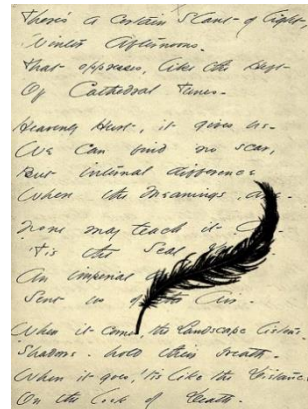 There's a Certain Slant of light,
Winter Afternoons.
That oppresses, like the Heft
Of Cathedral Tunes.
Heavenly Hurt, it gives us.
We Can find no scar,
But internal difference
Where the Meanings, are.
None may teach it
'Tis the Seal
An imperial
Sent us of the Air.
When it comes, the Landscape listens.
Shadows. hold their breath.
When it goes, 'tis like the Distance
On the look of Death.